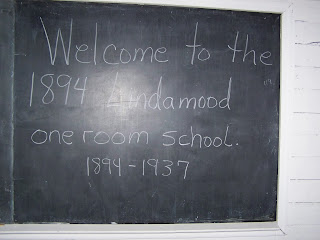 Welcome to the
1894 Lindamood
one room school.
1894-1937